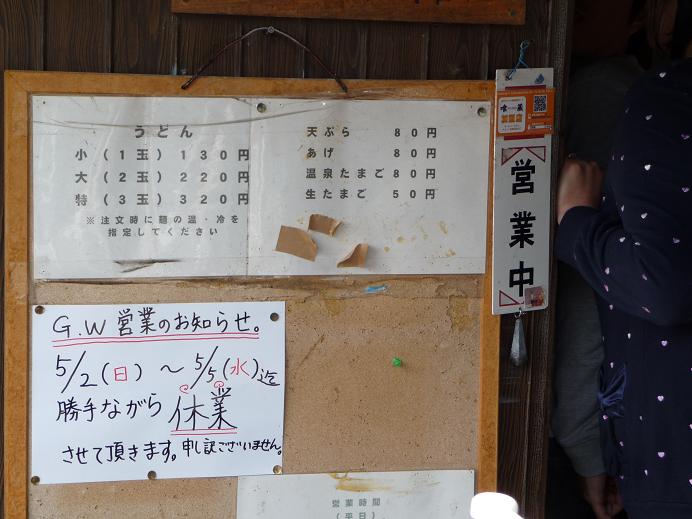 うどん
小(1玉)130円
大(2玉)220円
特(3玉)320円
※注文時に麺の温・冷を
指定してください
天ぷら 80円
あげ 80円
温泉たまご80円
生たまご 50円
営業中
G.W 営業のお知らせ。
5/2(日)〜5/5(水)迄
勝手ながら 休業
させて頂きます。申し訳ございません。
営業時間
(平日)